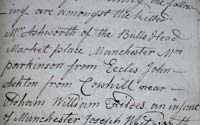 ing are amongst the killed
Mr Ashworth of the Bulls Head
Market place Manchester Mrs
parkinson from Eccles John
Ashton from Cowhill near
Oldham William Fildes an infant
of Manchester Joseph